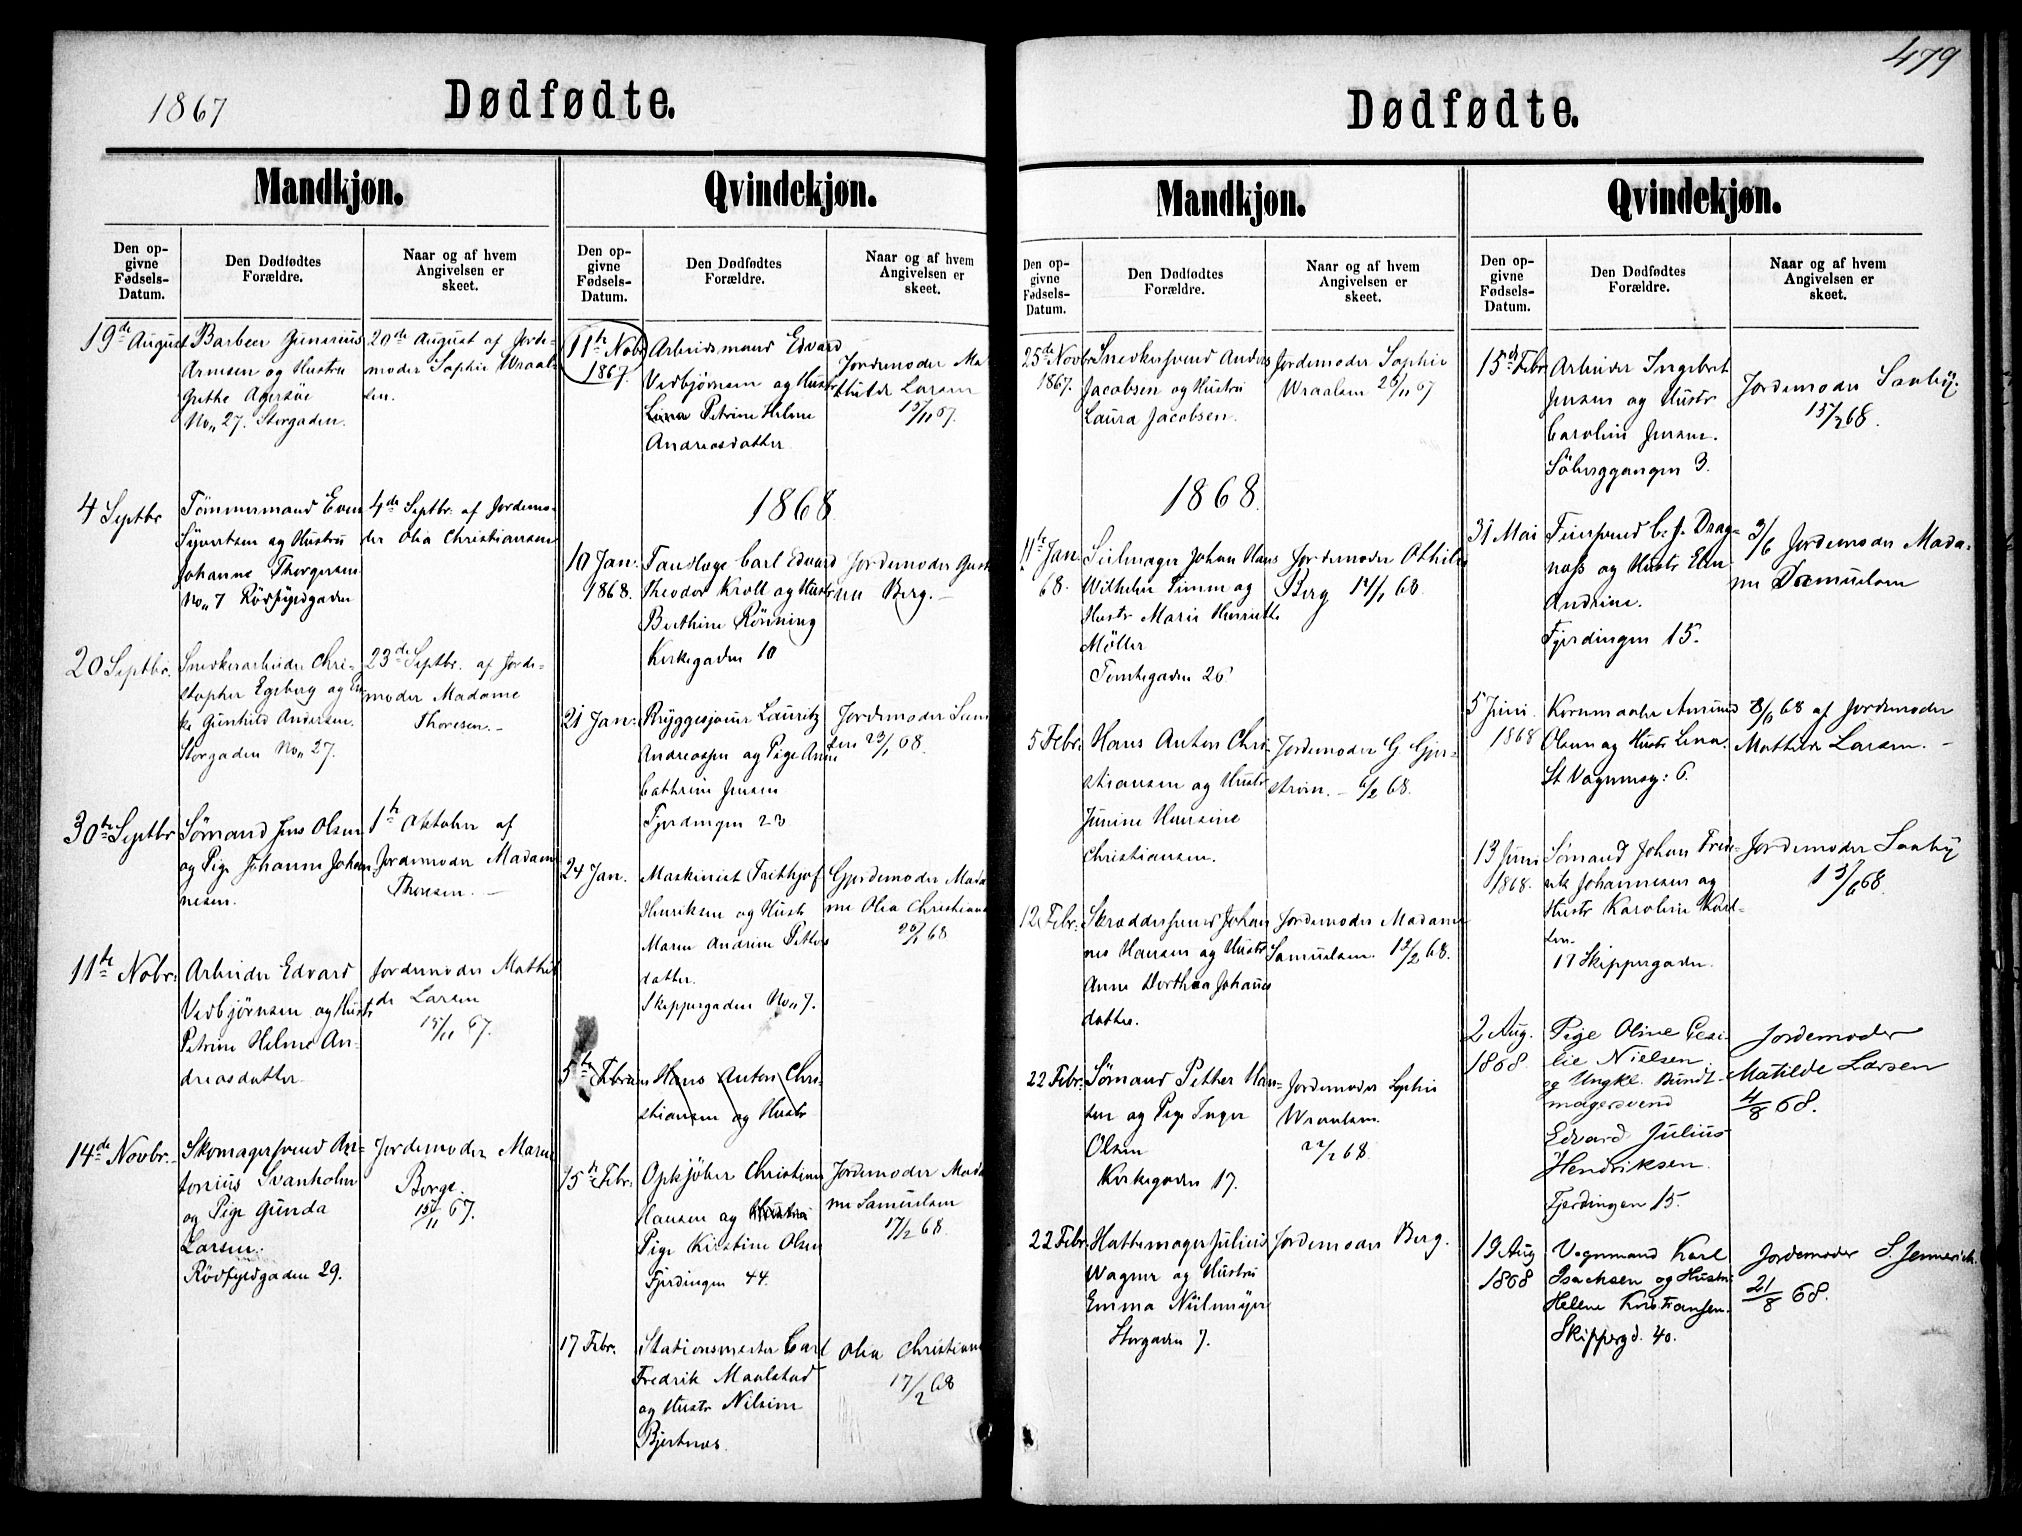 1867
Dødfødte.
Mandkjøn.
Qvindekjøn.
Den op-
givne
Fødsels-
Datum.
Den Dødfødtes
Forældre.
Naar og af hvem
Angivelsen er
skeet.
Den op-
givne
Fødsels-
Datum.
Den Dødfødtes
Forældre.
Naar og af hvem
Angivelsen er
skeet.
19de August
Barbeer Gunerius
Arnesen og Hustru
Grethe Agersøe
No 27. Storgaden.
20de August af Jorde-
moder Sophie Wraal-
sen.
4 Septbr
Tømmermand Even
Syvertsen og Hustru
Johanne Thorgersen
No 7 Rødfyldgaden
4de Septbr. af Jordemo-
der Olia Christiansen
20 Septbr.
Snedkerarbeider Chri-
stopher Egeberg og En-
ke Gunhild Andersen.
Storgaden No 27.
23de Septbr. af Jorde-
moder Madame
Thoresen.-
30te Septbr
Sømand Jens Olsen
og Pige Johanne Johan
nesen.
1te Oktober af
Jordemoder Madame
Thoresen.-
11te Nobr:
Arbeider Edvard
Vedbjørnsen og Hustr
Petrine Helme An-
dreasdatter.
Jordemoder Mathil
de Larsen
15/11 67.
14de Novbr.
Skomagersvend An-
tonius Svanholm
og Pige Gunda
Larsen.
Rødfyldgaden 29.
Jordemoder Maren
Borge.
15/11 67.
11te Nobr
1867.
Arbeidsmand Edvard
Vedbjørnsen og Hustr
Lina Petrine Helme
Andreasdatter
Jordemoder Ma
thilde Larsen
15/11 67.
1868
10 Jan:
1868.
Tandlæge Carl Edvard
Theodor Kroll og Hustr
Berthine Rönning
Kirkegaden 10
Jordemoder Gust
na Berg.-
21 Jan:
Bryggesjouer Lauritz
Andreassen og Pige Anne
Cathrine Jensen
Fjerdingen 23
Jordemoder Sam
sen 23/1 68.
24 Jan.
Maskinist Frithjof
Henriksen og Hustr
Maren Andrine Petters
datter.
Skippergaden No 7.
Gjordemoder Mada
me Olia Christians
25/1 68
5te Februar
Hans Anton Chri-
stiansen og Hustr
15de Febr:
Opkjøber Christian
Hansen og Hustru
Pige Kirstine Olsen
Fjerdingen 44.
Jordemoder Mada
me Samuelsen
17/2 68
17 Febr.
Stationsmester Carl
Fredrik Maalstad
og Hustr Nilsine
Bjertnæs.
Olia Christians
17/2 68
479
Dødfødte.
Mandkjøn.
Qvindekjøn.
Den op-
givne
Fødsels-
Datum.
Den Dødfødtes
Forældre.
Naar og af hvem
Angivelsen er
skeet.
Den op-
givne
Fødsels-
Datum.
Den Dødfødtes
Forældre.
Naar og af hvem
Angivelsen er
skeet.
25de Novbr
1867.
Snedkersvend Anders
Jacobsen og Hustru
Laura Jacobsen.
Jordemoder Sophie
Wraalsen 26/11 67
1868.
11te Jan
68.
Seilmager Johan Hans
Wilhelm Timm og
Hustr Marie Henriette
Møller
Tomtegaden 26
Jordemoder Othilie
Berg 12/1 68
5 Febr:
Hans Anton Chri-
stiansen og Hustr
Junine Hansine
Christiansen.
Jordemoder G Gjer-
strøm.- 6/2 68.
12 Febr:
Skræddersvend Johan
nes Hansen og Hustr
Anne Dorthea Johannes
datter.
Jordemoder Madame
Samuelsen. 12/2 68.
22 Febr:
Sømand Petter Han-
sen og Pige Inger
Olsen
Kirkegaden 17.
Jordemoder Sophie
Wraalsen.
22/2 68.
22 Febr.
Hattemager Julius
Wagner og Hustru
Emma Neilmyer
Storgaden 7.
Jordemoder Berg.
15de Febr
Arbeider Ingebret
Jensen og Hustr
Caroline Jensen.
Söberggangen 3.
Jordemoder Sanby.
15/2 68.
31 Mai
Feiersvend C. J. Drag-
næs og Hustr Elen
Andrine.
Fjerdingen 15.
3/6 Jordemoder Mada-
me Samuelsen
5 Juni
1868
Kornmaaler Amund
Olsen og Hustr Lina.
St Vognmsg: 6.
8/6 68 af Jordemoder
Mathilde Larsen.-
13 Juni
1868.
Sømand Johan Frede-
rik Johannesen og
Hustr Karoline Karl-
sen.
17 Skippergaden.
Jordemoder Sanby
13/6 68.
2 Aug.
1868.
Pige Oline Cesi-
lie Nielsen.
og Ungkl. Bundt-
magersvend
Edvard Julius
Hendriksen.
Fjerdingen 15.
Jordemoder
Matilde Larsen
4/8 68.
19 Aug
1868
Vognmand Karl
Isachsen og Hustru
Helene Kristiansen.
Skipperg d. 40.
Jordemoder S. Jennerich.
21/8 68.